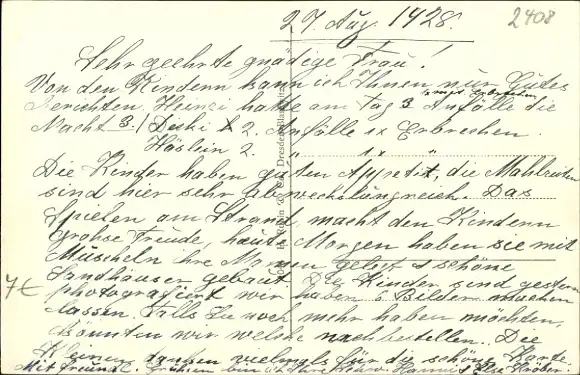 27. Aug. 1928.
2408
Sehr geehrte gnädige Frau!
Von den Kindern kann ich Ihnen nur Gutes
berichten. Heinzi hatte am Tag 3 Anfälle die
Nacht 3. 2. Anfälle 1x Erbrechen.
Häslein 2. " 1x "
Die Kinder haben guten Appetit, die Mahlzeiten
sind hier sehr abwechslungreich. Das
Spielen am Strand macht den Kindern
grohse Freude, heute Morgen haben sie mit
Muscheln ihre Namen gelegt & schöne
Sandhäuser gebaut. Die Kinder sind gestern
photografiert wir haben 6 Bilder machen
lassen. Falls Sie noch mehr haben möchten,
könnten wir welche nachbestellen. Die
Kleinen danken vielmals für die schöne Karte.
Mit freundl. Grühsen bin ich Ihre
7€